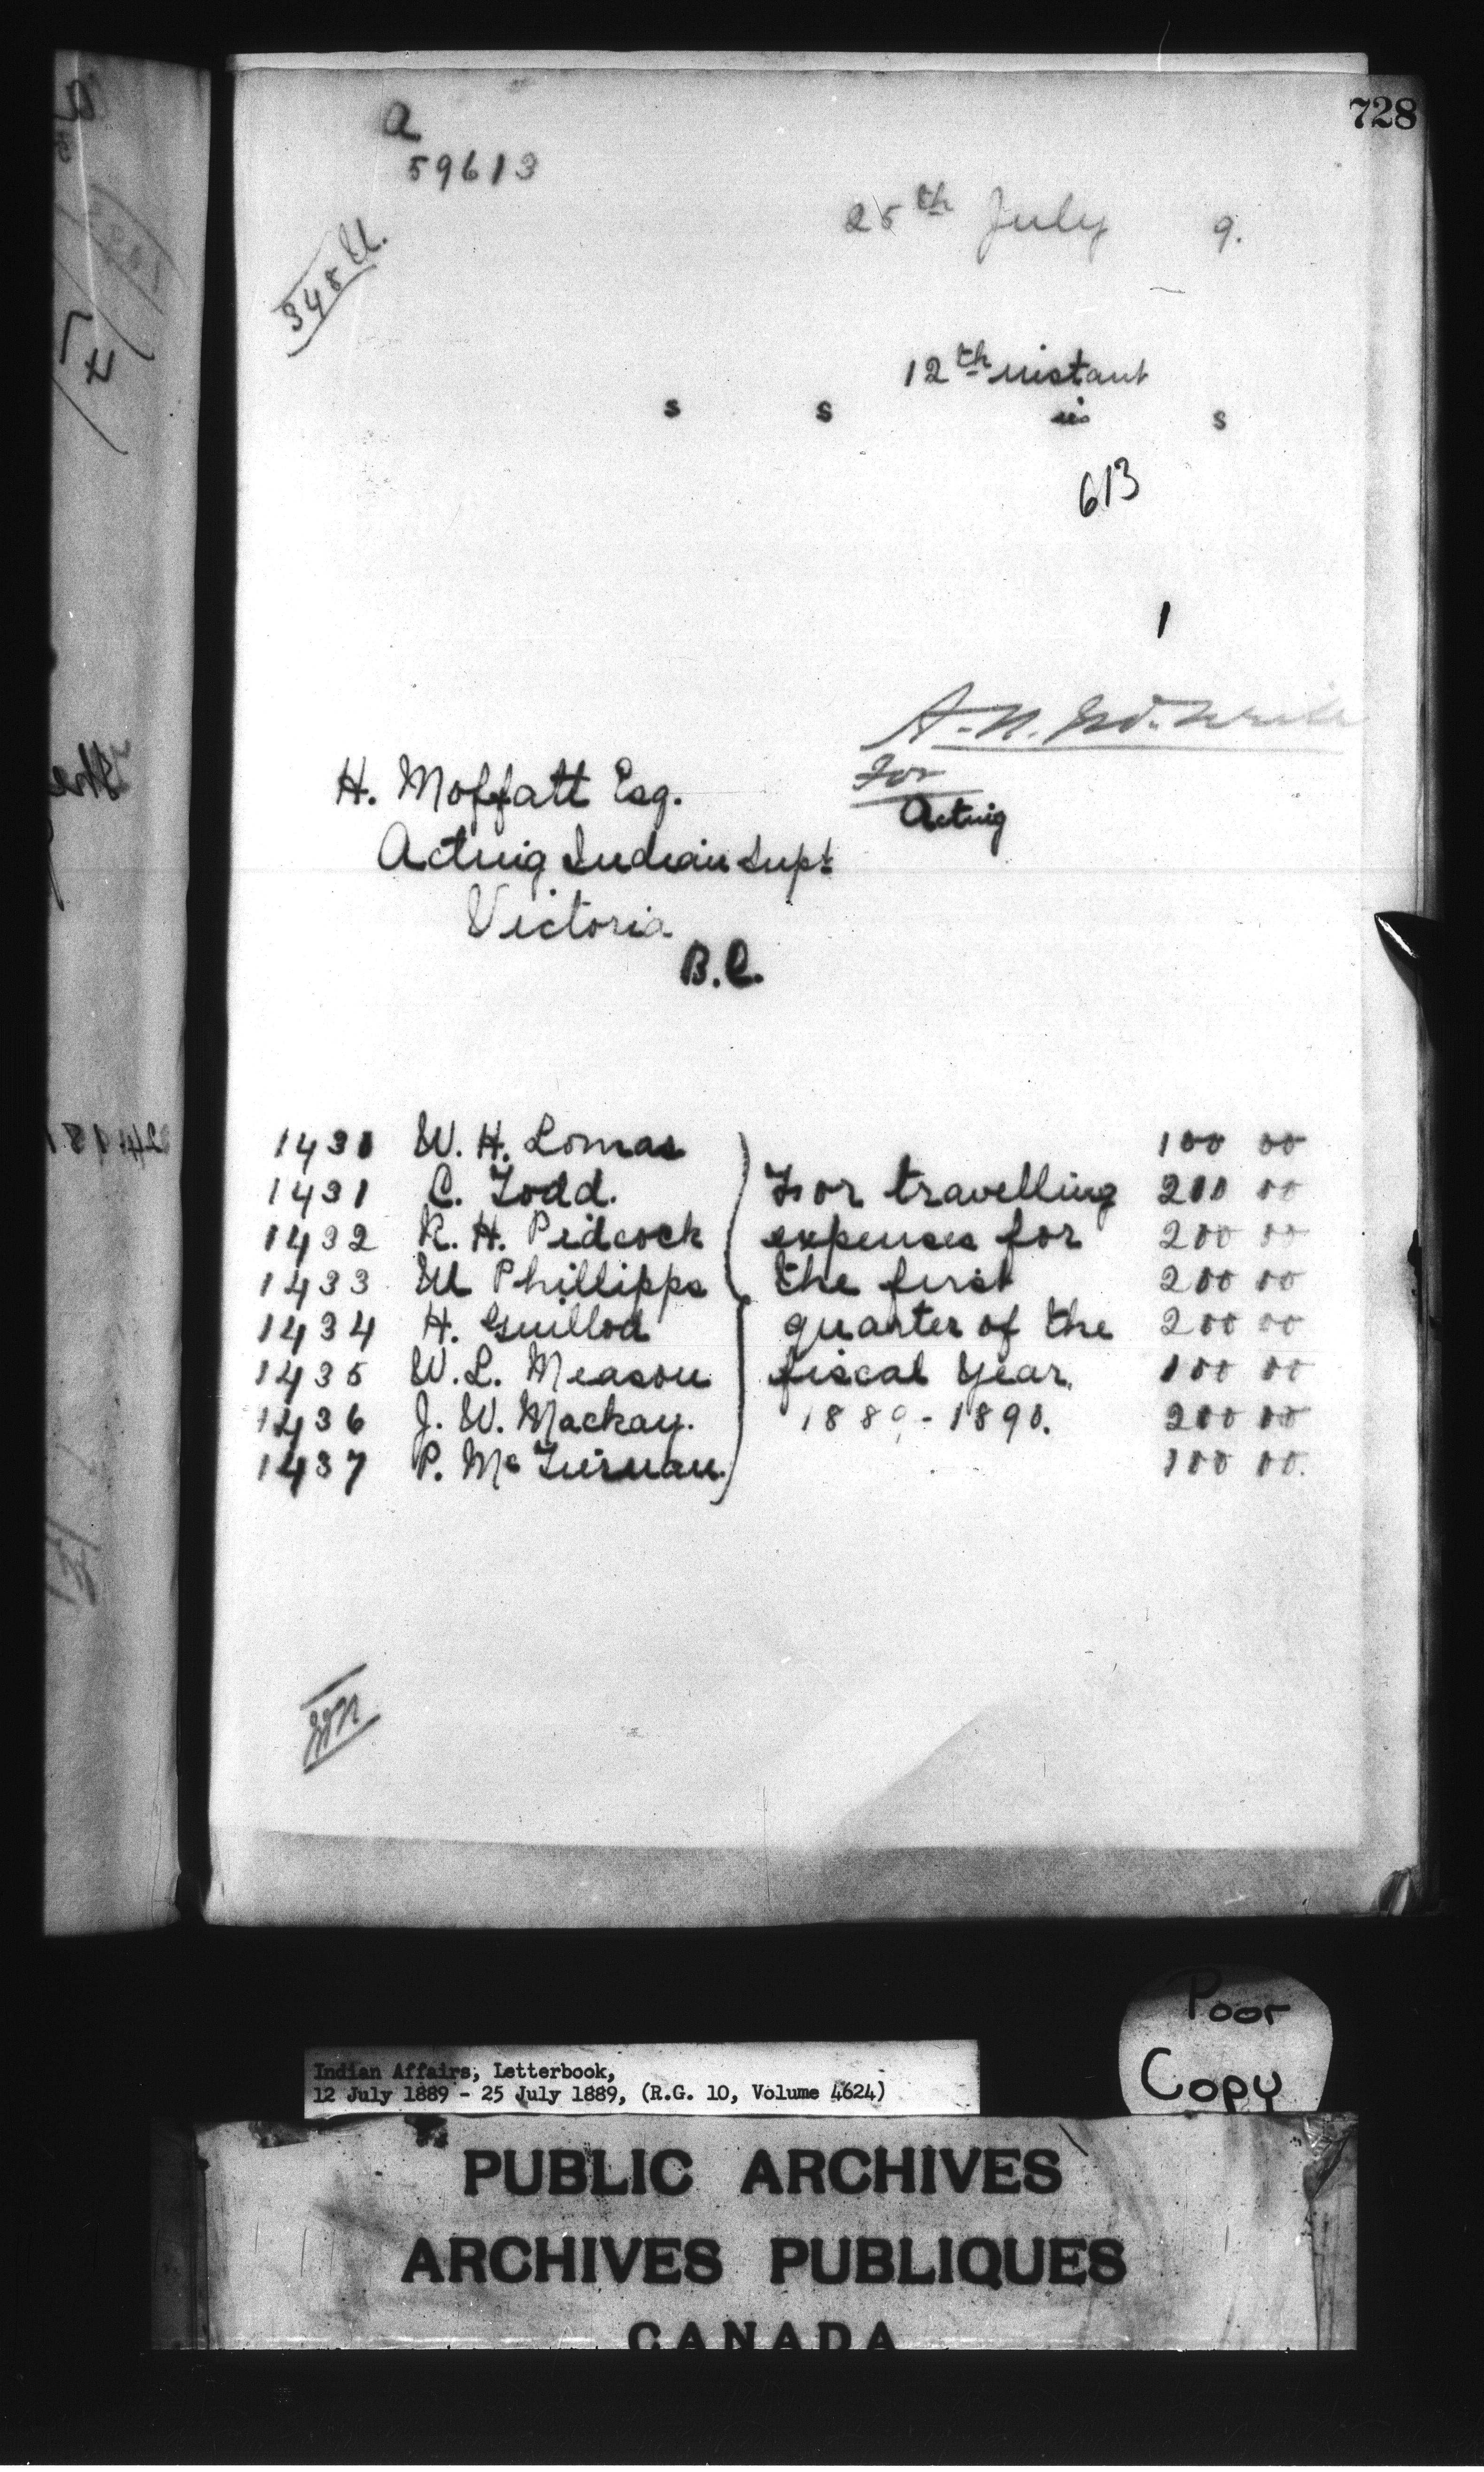 728
a
59613
25th July 9.
348
12th instant
s s is s
613
1
For
Acting
H. Moffatt Esq.
Acting Indian Supt
Victoria
B.C.
1430 W. H. Lomas 100 00
1431 C. Todd. For travelling 200 00
1432 R. H. Pidcock expenses for 200 00
1433 W Phillipps the first 200 00
1434 H. Guillod quarter of the 200 00
1435 W. L. Meason fiscal year 100 00
1436 J. W. Mackay. 1889-1890. 200 00
1437 P. McTiernan. 100 00.
Poor
Copy
Indian Affairs, Letterbook,
12 July 1889 - 25 July 1889, (R.G. 10, Volume 4624)
PUBLIC ARCHIVES
ARCHIVES PUBLIQUES
CANADA